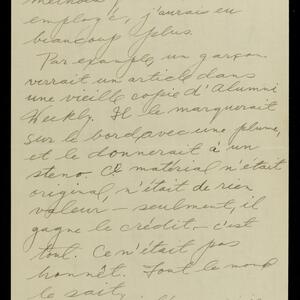 employé, j'aurais eu
beaucoup plus.
Par exemple, un garçon
verrait un article dans
une vieille copie d'Alumni
Weekly. Il le marquerait
sur le bord, avec une plume,
et le donnerait à un
steno. Ce matérial n'était
original, n'était de rien
valeur — seulment, il
gagne le crédit — c'est
tout. Ce n'était pas
honnêt. Tout le monde
le sait,